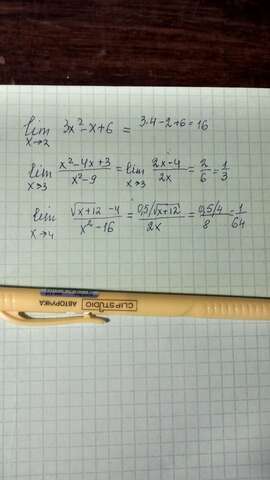 lim x→2 3x²-x+6 = 3·4-2+6=16
lim x→3 (x²-4x+3)/(x²-9) = lim x→3 (2x-4)/(2x) = 2/6 = 1/3
lim x→4 (√(x+12) -4)/(x²-16) = (0,5/√(x+12))/(2x) = (0,5/4)/8 = 1/64
CLIPSTUDIO АВТОРУЧКА